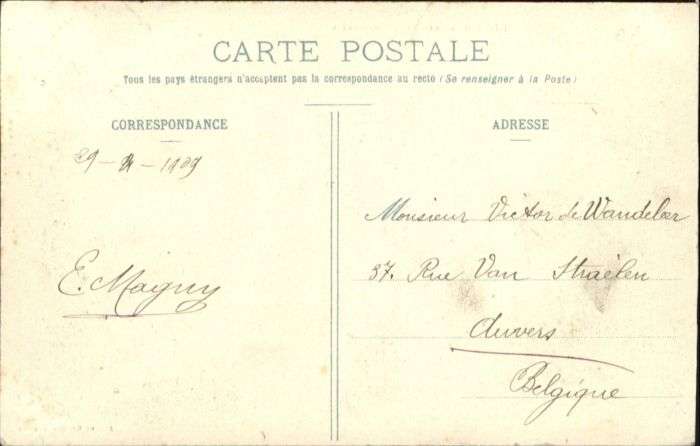 CARTE POSTALE
Tous les pays étrangers n'acceptent pas la correspondance au recto (Se renseigner à la Poste)
CORRESPONDANCE
29 - - 1909
E. Magny
ADRESSE
Monsieur Victor de Wandeleer
37. Rue Van Straëlen
Anvers
Belgique